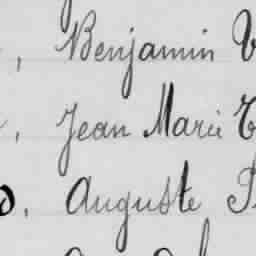 , Benjamin
, Jean Marie
, Auguste